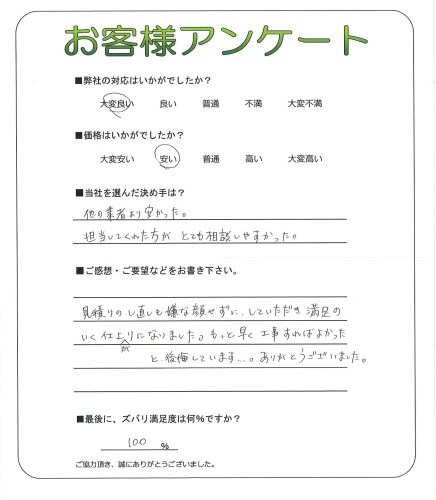 お客様アンケート
■弊社の対応はいかがでしたか？
大変良い 良い 普通 不満 大変不満
■価格はいかがでしたか？
大変安い 安い 普通 高い 大変高い
■当社を選んだ決め手は？
他の業者より安かった。
担当してくれた方が、とても相談しやすかった。
■ご感想・ご要望などをお書き下さい。
見積りのし直しも嫌な顔せずに、していただき満足の
いく仕上がりになりました。もっと早く工事すればよかった
と、後悔しています…。ありがとうございました。
■最後に、ズバリ満足度は何％ですか？
100 ％
ご協力頂き、誠にありがとうございました。